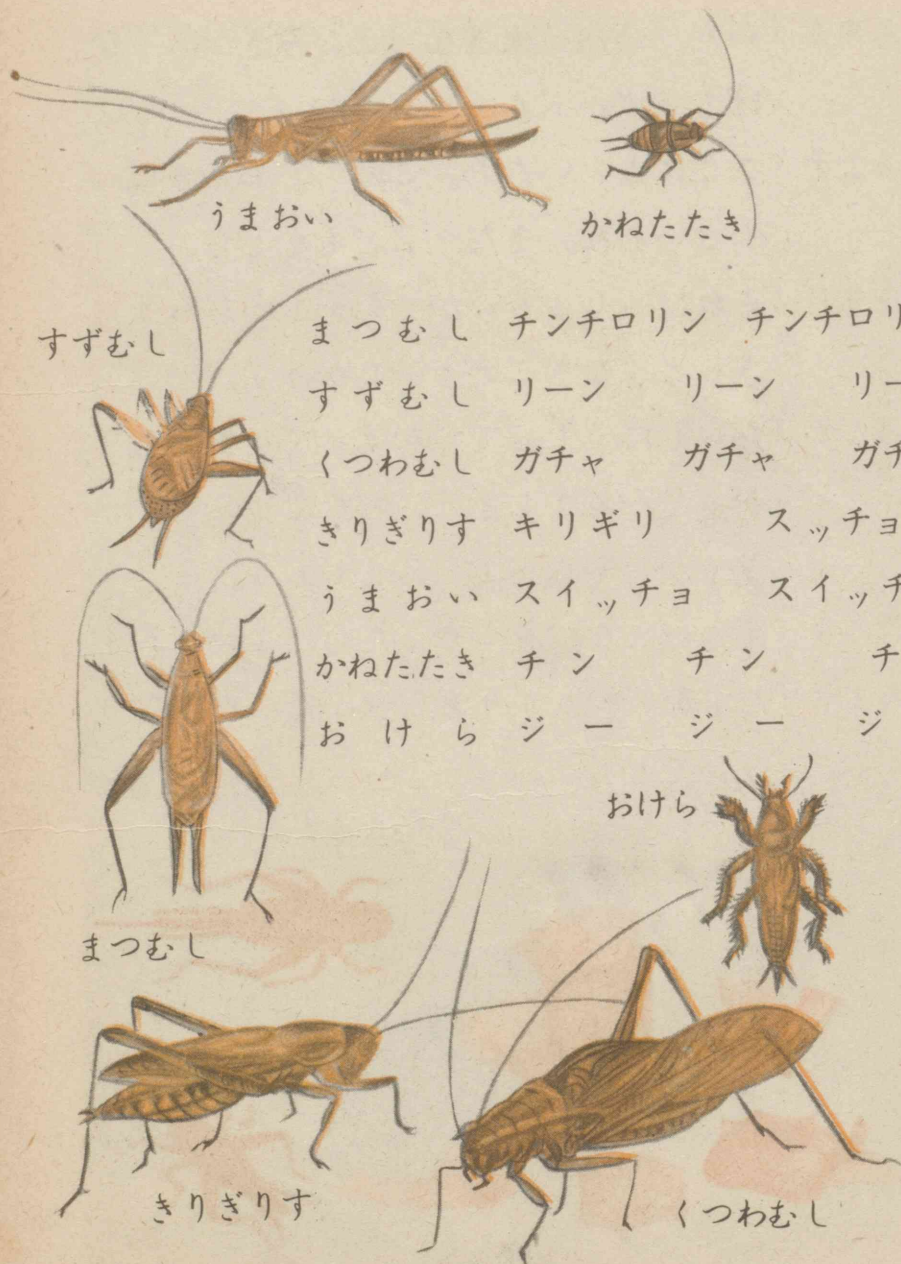 うまおい
かねたたき
すずむし
まつむし チンチロリン チンチロリ
すずむし リーン リーン リー
くつわむし ガチャ ガチャ ガチ
きりぎりす キリギリ スッチョ
うまおい スイッチョ スイッチ
かねたたき チン チン チ
おけら ジー ジー ジ
おけら
まつむし
きりぎりす
くつわむし